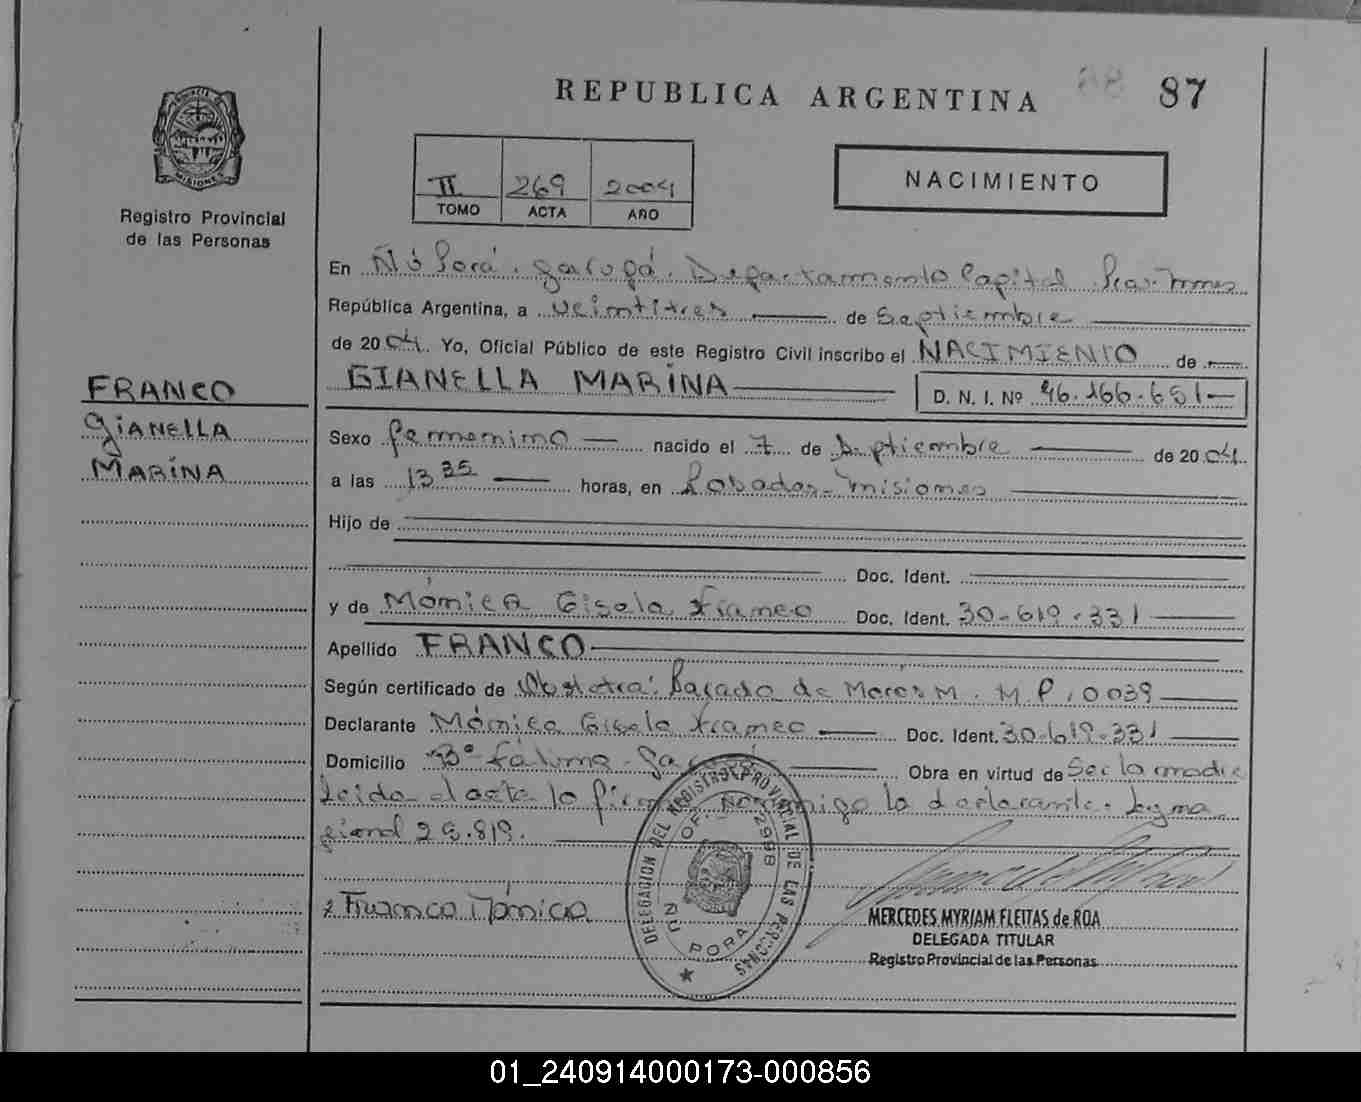 REPUBLICA ARGENTINA 87
PROVINCIA DE
MISIONES
Registro Provincial
de las Personas
II 269 2004
TOMO ACTA AÑO
NACIMIENTO
En Ñú Porá. Garupá. Departamento Capital Pcia. Mnes
República Argentina, a veintitres de Septiembre
de 2004. Yo, Oficial Público de este Registro Civil inscribo el NACIMIENTO de
GIANELLA MARINA D. N. I. Nº 46.166.651
FRANCO
GIANELLA
MARINA
Sexo femenino nacido el 7 de Septiembre de 2004.
a las 13 35 horas, en Posadas - Misiones
Hijo de
Doc. Ident.
y de Mónica Gisela Franco Doc. Ident. 30.619.331
Apellido FRANCO
Según certificado de Obstetra: de M. M.P. 0039
Declarante Mónica Gisela Franco Doc. Ident. 30.619.331
Domicilio Bº Fátima - Obra en virtud de Ser la madre
Leida el acta la firma conmigo la declarante. Legma
gional
x Franco Mónica
DELEGACION DEL REGISTRO PROVINCIAL DE LAS PERSONAS
OF. 2998
ÑU PORA
MERCEDES MYRIAM FLEITAS de ROA
DELEGADA TITULAR
Registro Provincial de las Personas
01_240914000173-000856